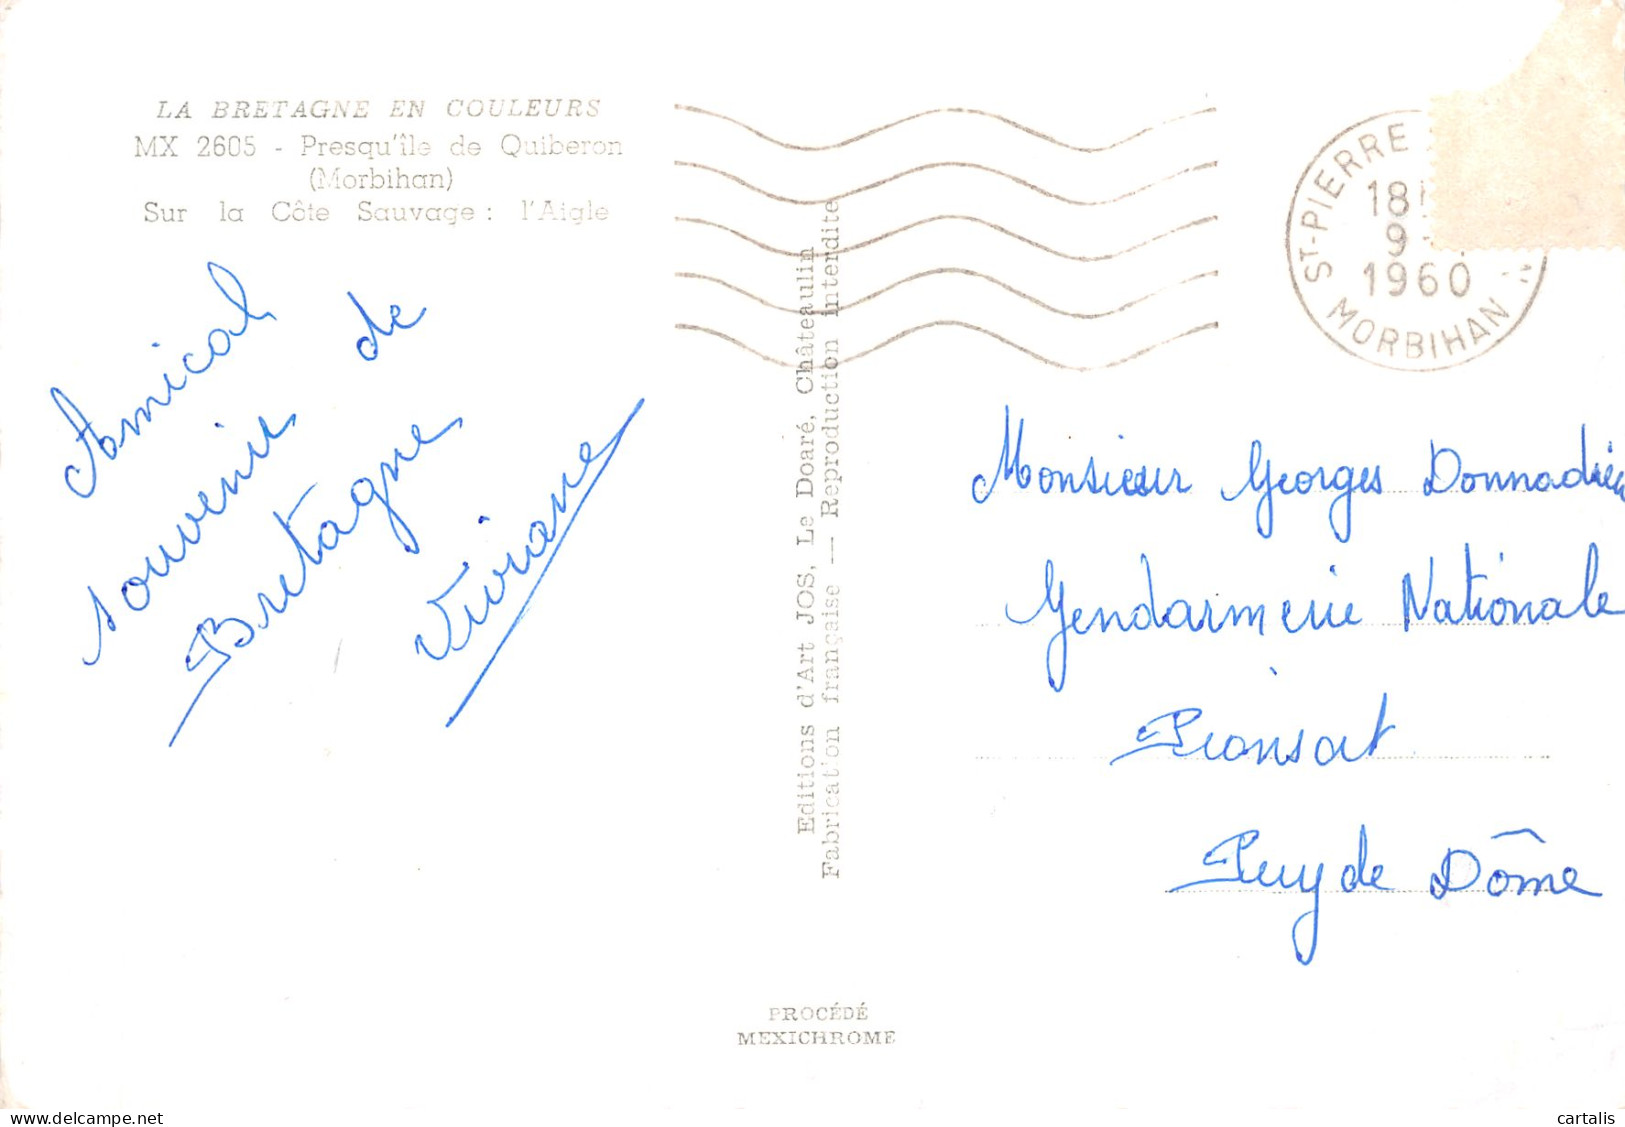 LA BRETAGNE EN COULEURS
MX 2605 - Presqu'île de Quiberon
(Morbihan)
Sur la Côte Sauvage : l'Aigle
Amical
souvenir de
Bretagne
Viviane
Editions d'Art JOS, Le Doaré, Châteaulin
Fabrication française — Reproduction interdite
ST-PIERRE
18
9
1960
MORBIHAN
Monsieur Georges Donnadieu
Gendarmerie Nationale
Pionsat
Puy de Dôme
PROCÉDÉ
MEXICHROME
delcampe.net
cartalis